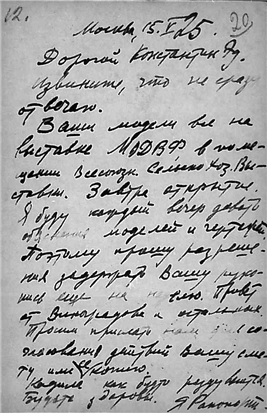 12.
Москва, 15.I.25.
Дорогой Константин Эд.
Извините, что не сразу
отвечаю.
Ваши модели все на
выставке МОДВФ в поме-
щении Всесоюзн. Сельско Хоз. Выс-
тавки. Завтра открытие.
Я буду каждый вечер давать
моделей и чертежей
Поэтому прошу разреше-
ния задержать Вашу руко-
пись еще на неделю. Привет
от Виноградова и остальных.
Просим прислать нам
действий Вашу сме-
ту или
как будто
Будьте здоровы.